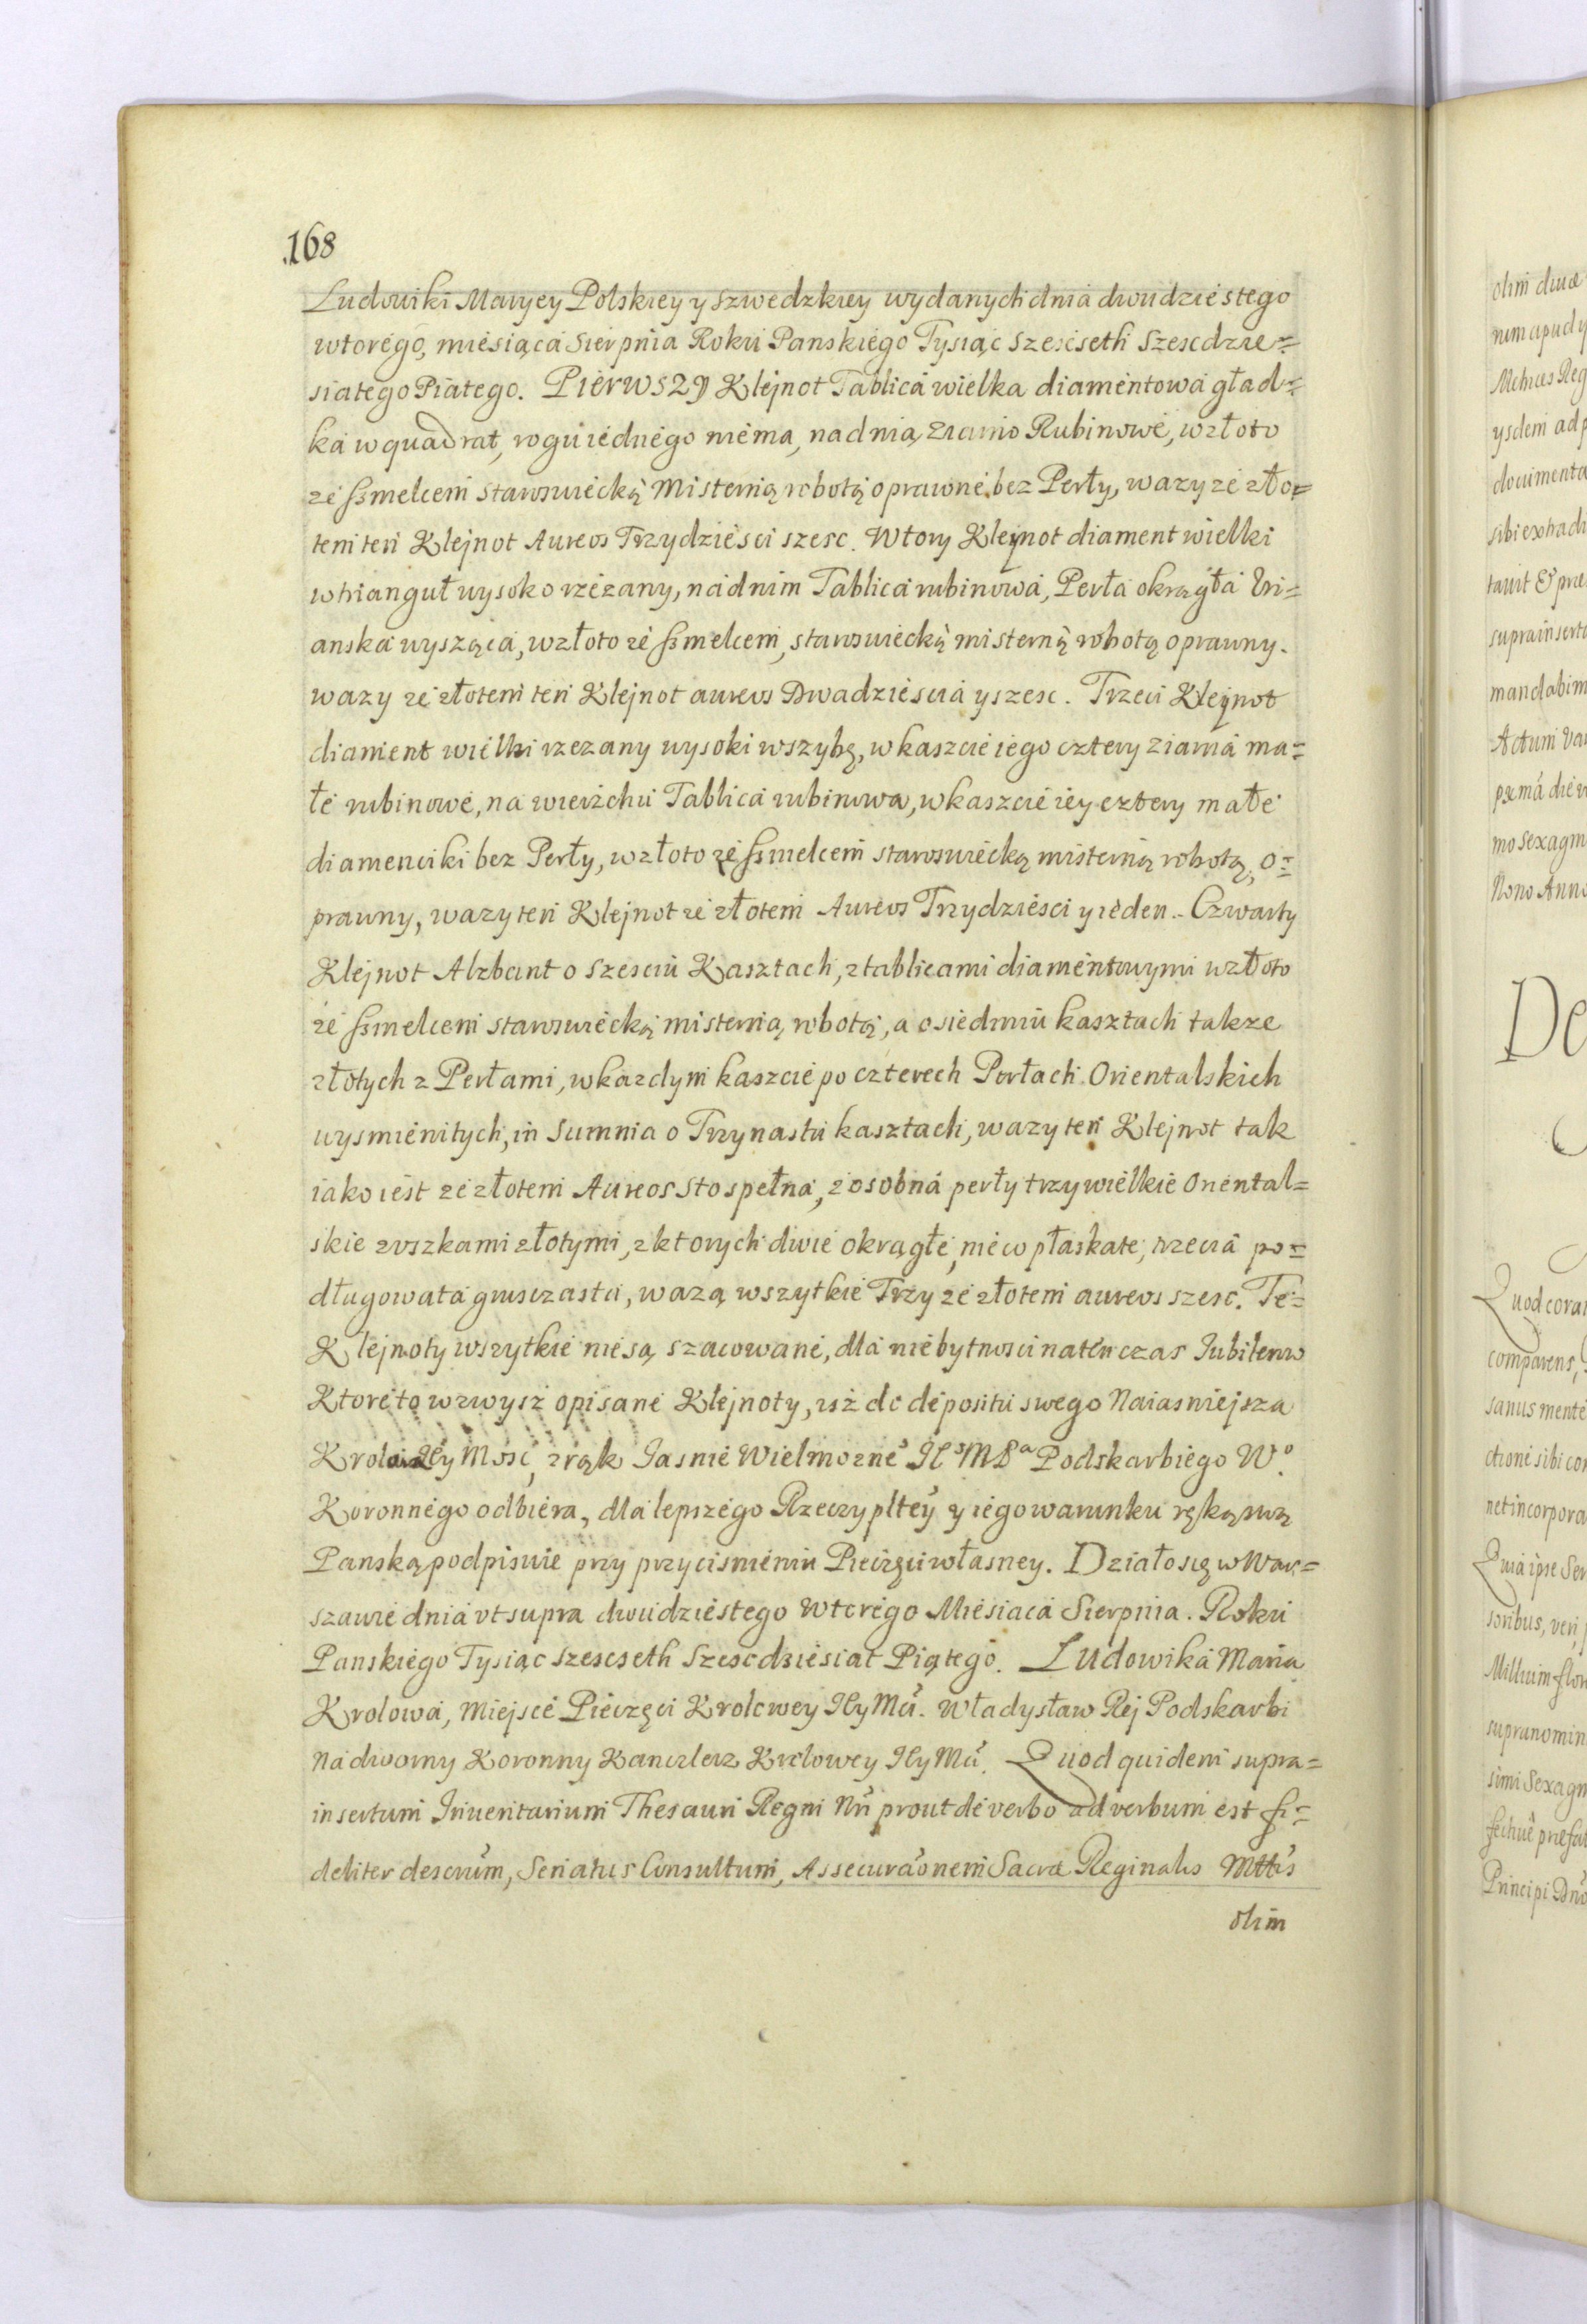 168
Ludowiki Maryey Polskiey y Szwedzkiey wydanych dnia dwudziestego
wtorego, miesiąca Sierpnia Roku Panskiego Tysiąc Szescseth Szescdzie=
siatego Piatego. Pierwszy Klejnot Tablica wielka diamentowa gład=
ka w quadrat, rogu iednego niema, nad nią Ziarno Rubinowe, w złoto
ze szmelcem staroswiecką Misterną robotą oprawne bez Perły, wazy ze zło=
tem ten Klejnot Aureos Trzydziesci szesc. Wtory Klejnot diament wielki
w triangul wysoko rzezany, nad nim Tablica rubinowa, Perła okrągła Uri=
anska wysząca, w złoto ze szmelcem, staroswiecką misterną robotą oprawny.
wazy ze złotem ten Klejnot aureos Dwadziescia y szesc. Trzeci Klejnot
diament wielki rzezany wysoki w szybę, w kaszcie iego cztery ziarna ma=
łe rubinowe, na wierzchu Tablica rubinowa, w kaszcie iey cztery małe
diamenciki bez Perły, w złoto ze szmelcem staroswiecką misterną robotą, o=
prawny, wazy ten Klejnot ze złotem Aureos Trzydziesci y ieden. Czwarty
Klejnot Alzbant o szesciu Kasztach, z tablicami diamentowymi w złoto
ze szmelcem staroswiecką misternią robotą, a o siedmiu kasztach takze
złotych z Perłami, w kazdym kaszcie po czterech Perłach Orientalskich
wysmienitych, in Summa o Trzynastu kasztach, wazy ten Klejnot tak
iako iest ze złotem Aureos Sto spełna, z osobna perły trzy wielkie Oriental=
skie z uszkami złotymi, z ktorych dwie okrągłe, nieco płaskate, trzecia po=
długowata gruszczasta, wazą wszytkie Trzy ze złotem aureos szesc. Te=
Klejnoty wszytkie niesą szacowane, dla niebytnosci naten czas Jubilerow
Ktore to wzwysz opisane Klejnoty, isz do depositu swego Naiasniejsza
Krolowa Jey Mosc, z rąk Jasnie Wielmozne° Je° Mści Podskarbiego W°.
Koronnego odbiera, dla lepszego Rzeczyplitey y iego warunku ręką swą
Panską podpisuie przy przycisnieniu Pieczęci własney. Działo się w War=
szawie dnia ut supra dwudziestego Wtorego Miesiaca Sierpnia. Roku
Panskiego Tysiąc szescseth Szescdziesiat Piątego. Ludowika Maria
Krolowa, Miejsce Pieczęci Krolowey Jey Mci. Władysław Rej Podskarbi
Nadworny Koronny Kanclerz Krolowey Jey Mci. Quod quidem supra=
insertum Inventarium Thesauri Regni Nri prout de verbo ad verbum est fi=
deliter descrum, Senatus Consultum, Assecuraonem Sacrae Reginalis Mttis
olim